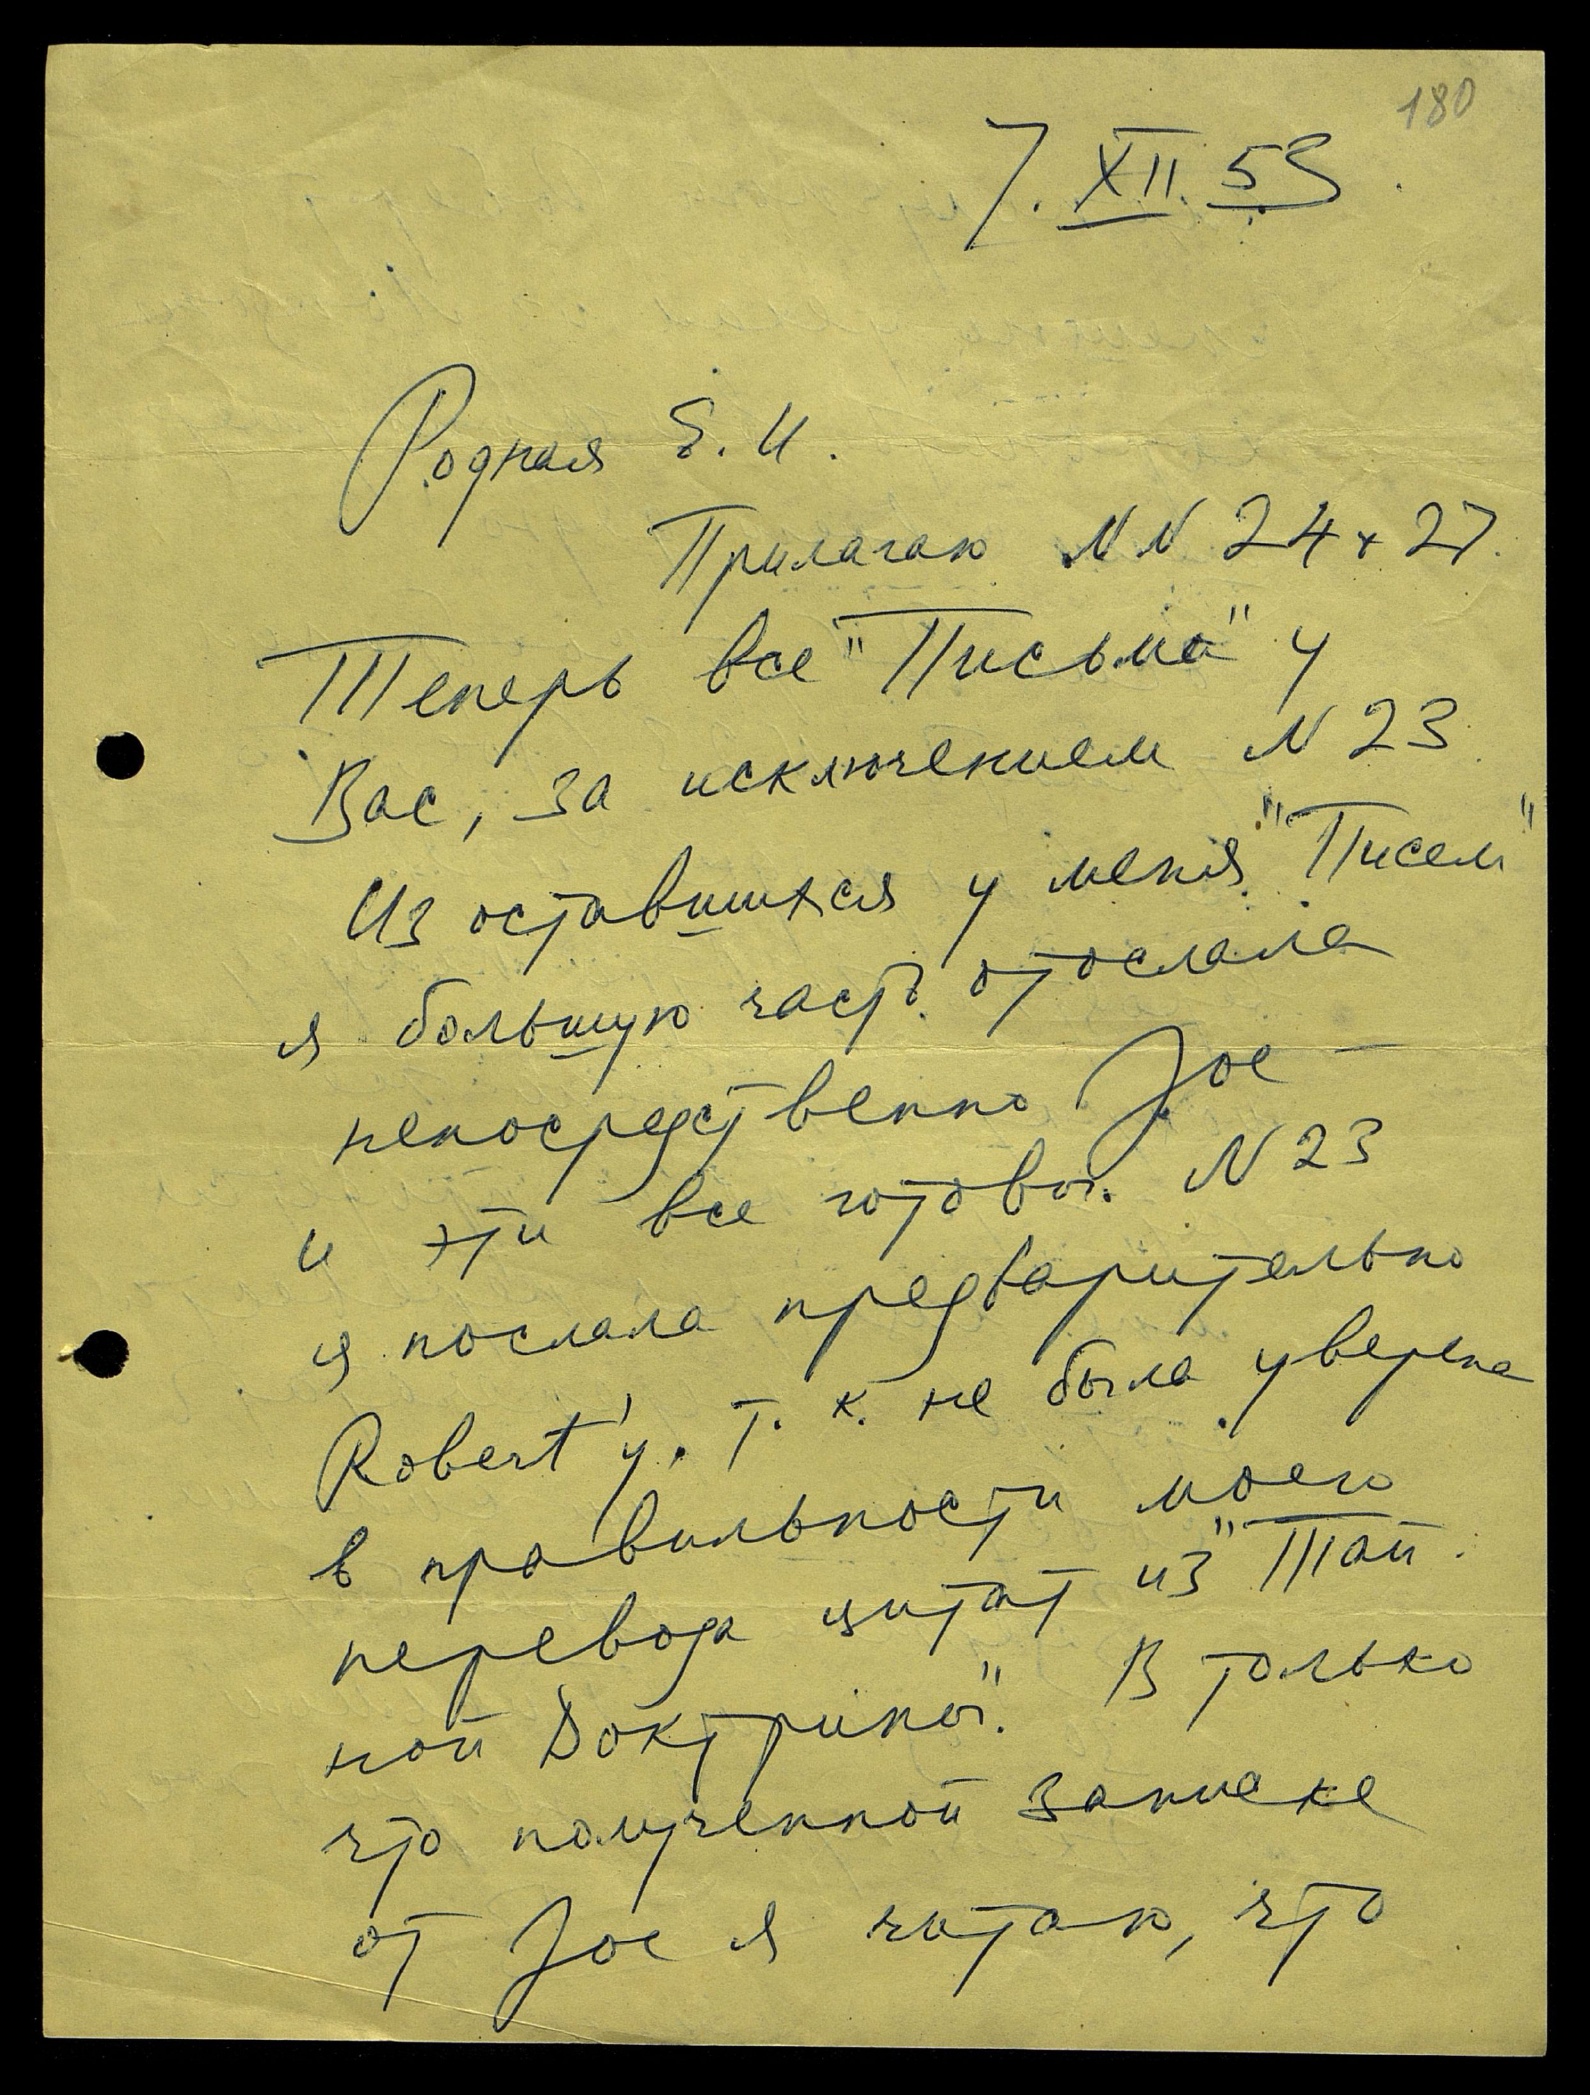 180
7. XII. 53
Родная Е. И.
Прилагаю NN 24 + 27.
Теперь все "Письма" у
Вас, за исключением N 23
Из оставшихся у меня "Писем"
я большую часть отослала
непосредственно Joe –
и эти все готовы. N 23
я послала предварительно
Robert'у. т. к. не была уверена
в правильности моего
перевода цитат из "Тай-
ной Доктрины". В только
что полученной записке
от Joe я читаю, что